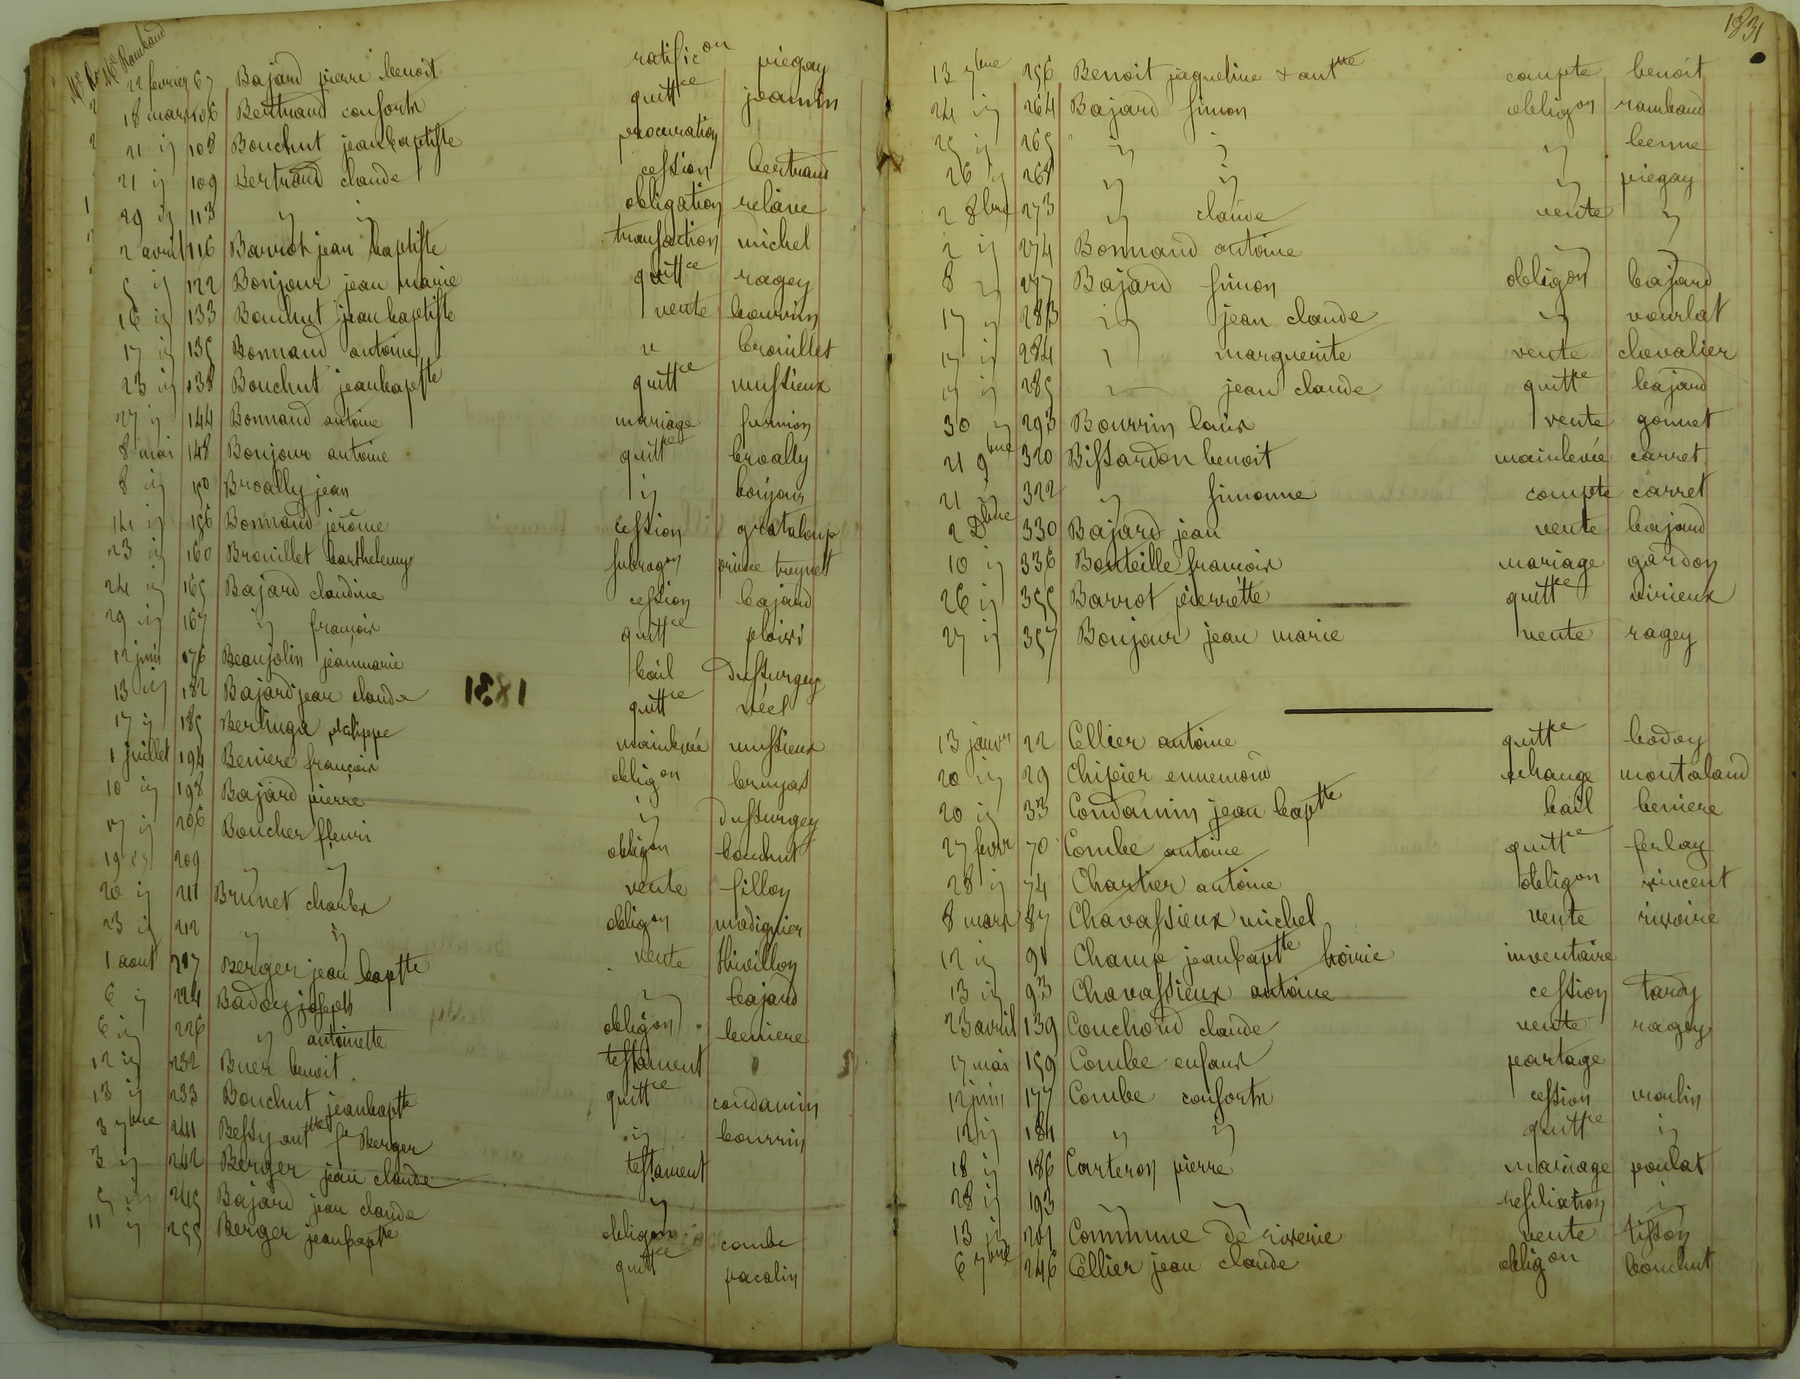 Me Rambaud
22 fevrier 67 Bajard pierre benoit ratificon piegay
18 mars 106 Bertrand consorts quittce jeannin
21 id 108 Bouchut jeanbaptiste procuration
21 id 109 Bertrand claude cession bertrand
29 id 113 id id obligation relave
2 avril 116 Barrot jean baptiste transaction michel
5 id 122 Bonjour jean marie quittce ragey
16 id 133 Bouchut jean baptiste vente bourrin
17 id 135 Bonnand antoine " brouillet
23 id 138 Bouchut jeanbapste quittce mussieux
27 id 144 Bonnand antoine mariage
8 mai 148 Bonjour antoine quittce broally
8 id 150 Broally jean id bonjour
14 id 156 Bonnand jérôme cession grataloup
23 id 160 Brouillet barthelemy subrogon
24 id 165 Bajard claudine cession bajard
29 id 167 id françois quittce
12 juin 176 Beaujolin jeanmarie bail Dussurgey
13 id 182 Bajard jean claude quittce néel
1831
17 id 185 Berlinga philippe mainlevée mussieux
1 juillet 194 Beniere françois obligon bruyas
10 id 198 Bajard pierre id Dussurgey
17 id 206 Boucher fleuri obligon bouchut
19 id 209 id id vente fillon
20 id 211 Brunet charles obligon madignier
23 id 212 id id vente thivillon
1 aout 217 Berger jean baptte id bajard
6 id 224 Badoy joseph obligon beniere
6 id 226 id antoinette testament
12 id 232 Buer benoit quittce condamin
13 id 233 Bouchut jeanbaptte id bourrin
3 7bre 241 Bessy antte fe Berger testament
3 id 242 Berger jean claude id
5 id 245 Bajard jean claude obligon combe
11 id 255 Berger jeanbaptte quittce pacalin
1831
13 7bre 256 Benoit jaqueline & autres compte benoit
24 id 264 Bajard simon obligon rambaud
25 id 265 id id id benne
26 id 268 id id id piegay
2 8bre 273 id claude vente id
2 id 274 Bonnand antoine id
8 id 277 Bajard simon obligon bajard
17 id 283 id jean claude id vourlat
17 id 284 id marguerite vente chevalier
17 id 285 id jean claude quittce bajard
30 id 293 Bourrin louis vente gonnet
21 9bre 320 Bissardon benoit mainlevée carret
21 id 322 id simonne compte carret
2 Dbre 330 Bajard jean vente bajard
10 id 336 Bouteille françois mariage gardon
26 id 355 Barrot pierrette quittce virieux
27 id 357 Bonjour jean marie vente ragey
13 janvr 22 Cellier antoine quittce badoy
20 id 29 Chipier ennemond echange montaland
20 id 33 Condamin jean baptte bail beniere
27 fevr 70 Combe antoine quittce ferlay
28 id 74 Chartier antoine obligon vincent
8 mars 87 Chavassieux michel vente rivoire
12 id 91 Champ jeanbaptte hoirie inventaire
13 id 93 Chavassieux antoine cession tardy
23 avril 139 Couchoud claude vente ragey
17 mai 159 Combe enfans partage
12 juin 177 Combe consorts cession moulin
12 id 184 id id quittce id
18 id 186 Carteron pierre mariage poulat
28 id 193 id resiliation id
13 jt 201 Commune de riverie vente tisson
6 7bre 246 Cellier jean claude obligon bouchut